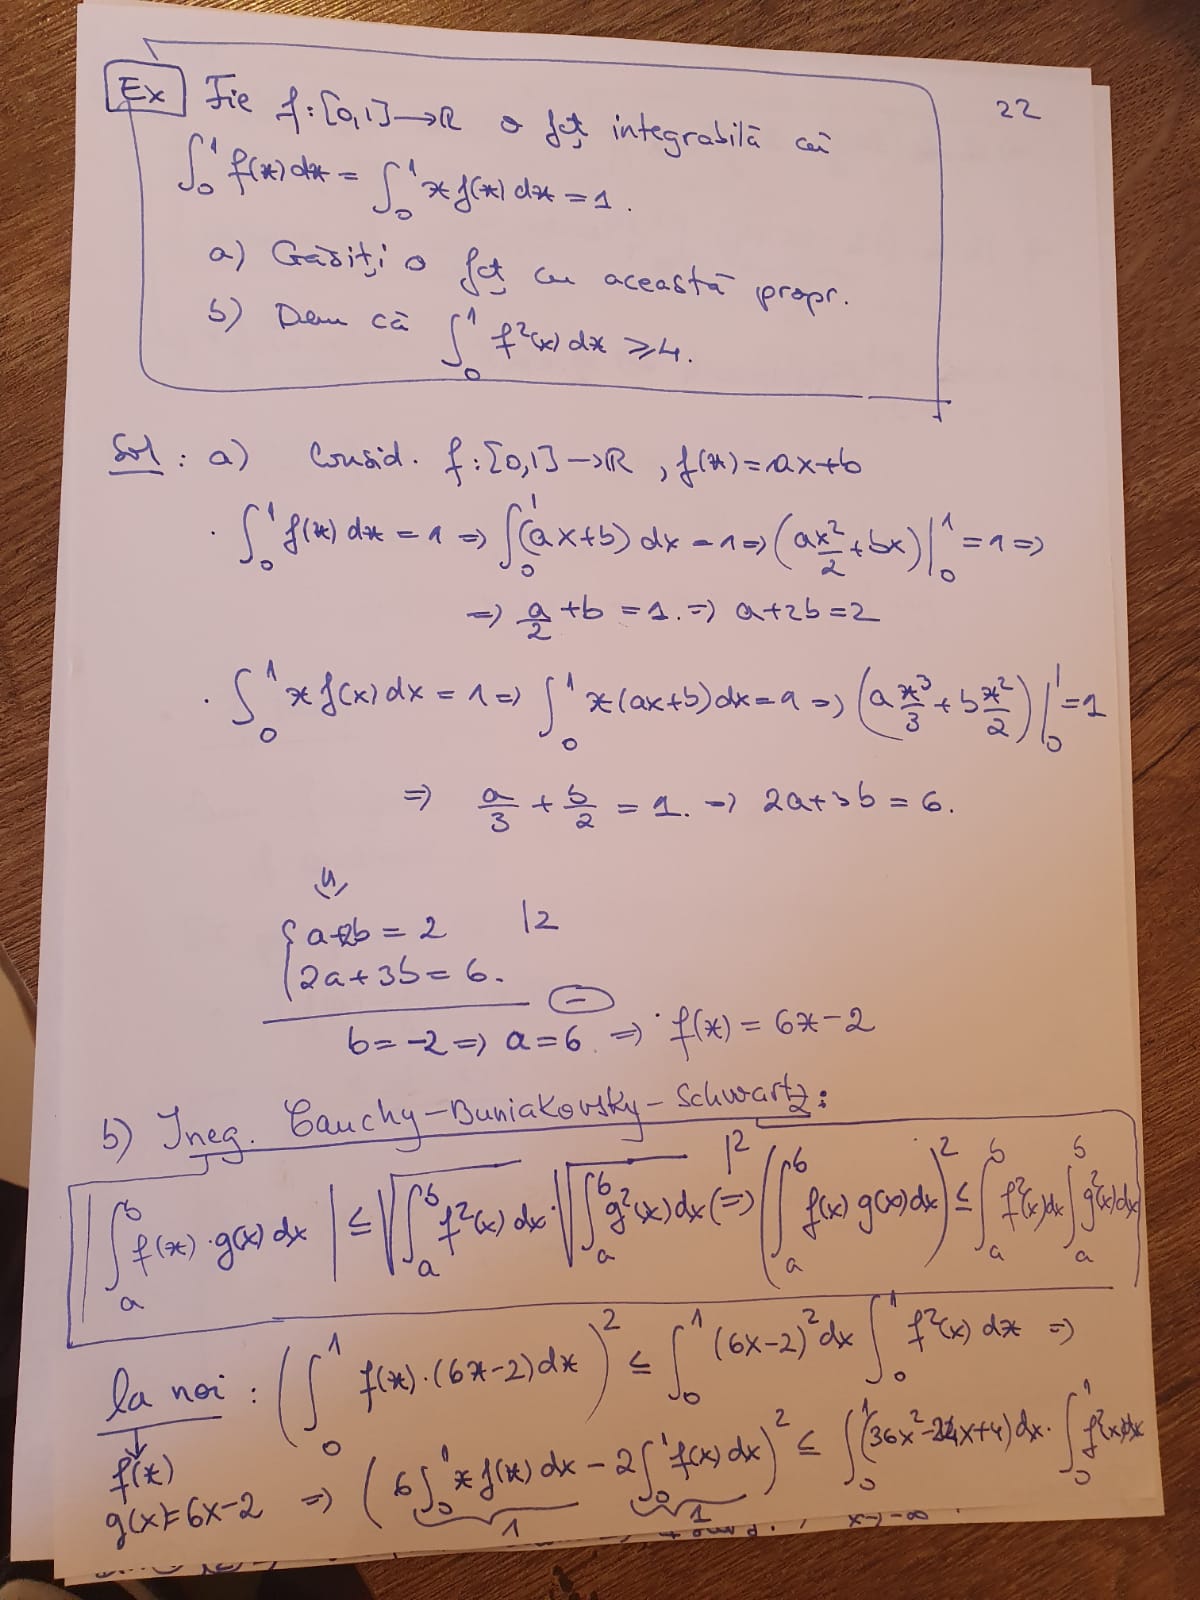 22
Ex Fie f:[0,1]→ℝ o fcț integrabilă cu
∫₀¹ f(x)dx = ∫₀¹ x f(x) dx = 1.
a) Găsiți o fcț cu această propr.
b) Dem că ∫₀¹ f²(x) dx ≥ 4.
Sol : a) Consid. f:[0,1]→ℝ, f(x)=ax+b
· ∫₀¹ f(x) dx = 1 => ∫₀¹ (ax+b) dx = 1 => (ax²/2 + bx)|₀¹ = 1 =>
=> a/2 + b = 1. => a+2b=2
· ∫₀¹ x f(x) dx = 1 => ∫₀¹ x(ax+b)dx = 1 => (a x³/3 + b x²/2)|₀¹ = 1
=> a/3 + b/2 = 1. => 2a+3b = 6.
⇓
{ a+2b = 2 |2
2a+3b = 6.
(−)
b = -2 => a = 6 => f(x) = 6x-2
b) Ineg. Cauchy-Buniakovsky-Schwartz:
|∫ₐᵇ f(x)·g(x) dx| ≤ √(∫ₐᵇ f²(x) dx) · √(∫ₐᵇ g²(x) dx) |² (=>) (∫ₐᵇ f(x) g(x) dx)² ≤ ∫ₐᵇ f²(x) dx ∫ₐᵇ g²(x) dx
la noi : (∫₀¹ f(x)·(6x-2) dx)² ≤ ∫₀¹ (6x-2)² dx ∫₀¹ f²(x) dx =>
f(x)
g(x)=6x-2 => (6∫₀¹ x f(x) dx - 2∫₀¹ f(x) dx)² ≤ ∫₀¹ (36x²-24x+4) dx · ∫₀¹ f²(x) dx
1 1
x→-∞